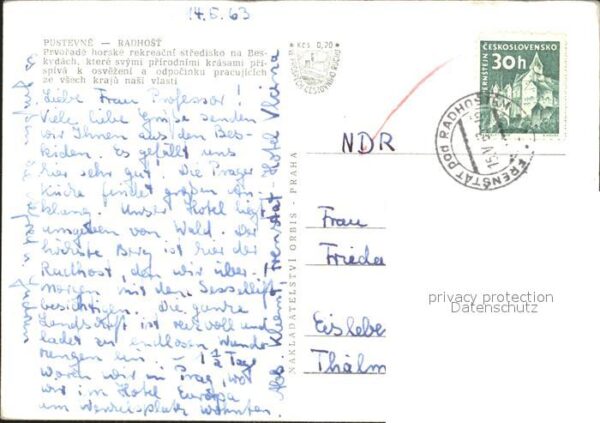 14.5.63
PÚSTEVNĚ — RADHOŠŤ
Prvořadé horské rekreační středisko na Bes-
kydách, které svými přírodními krásami při-
spívá k osvěžení a odpočinku pracujících
ze všech krajů naší vlasti
Liebe Frau Professor!
Viele liebe Grüße senden
wir Ihnen aus den Bes-
kiden. Es gefällt uns
hier sehr gut! Die Prager
Küche findet großen An-
klang. Unser Hotel liegt
umgeben von Wald. Der
höchste Berg ist hier der
Radhost, den wir über-
morgen mit dem Sessellift
besichtigen. Die ganze
Landschaft ist reizvoll und
ladet zu endlosen Wande
rungen ein. – 1 1/2 Tage
waren wir in Prag, wo
wir im Hotel Europa
am Wenzelsplatz wohnten.
Abs. Klient, Frenštát - Hotel Vlčina
NAKLADATELSTVÍ ORBIS PRAHA
Kčs 0,20
ČESKOSLOVENSKO
PERNŠTEJN
30h
FRENŠTÁT pod RADHOŠTĚM
NDR
Frau
Frieda
Eislebe
Thälm
privacy protection
Datenschutz